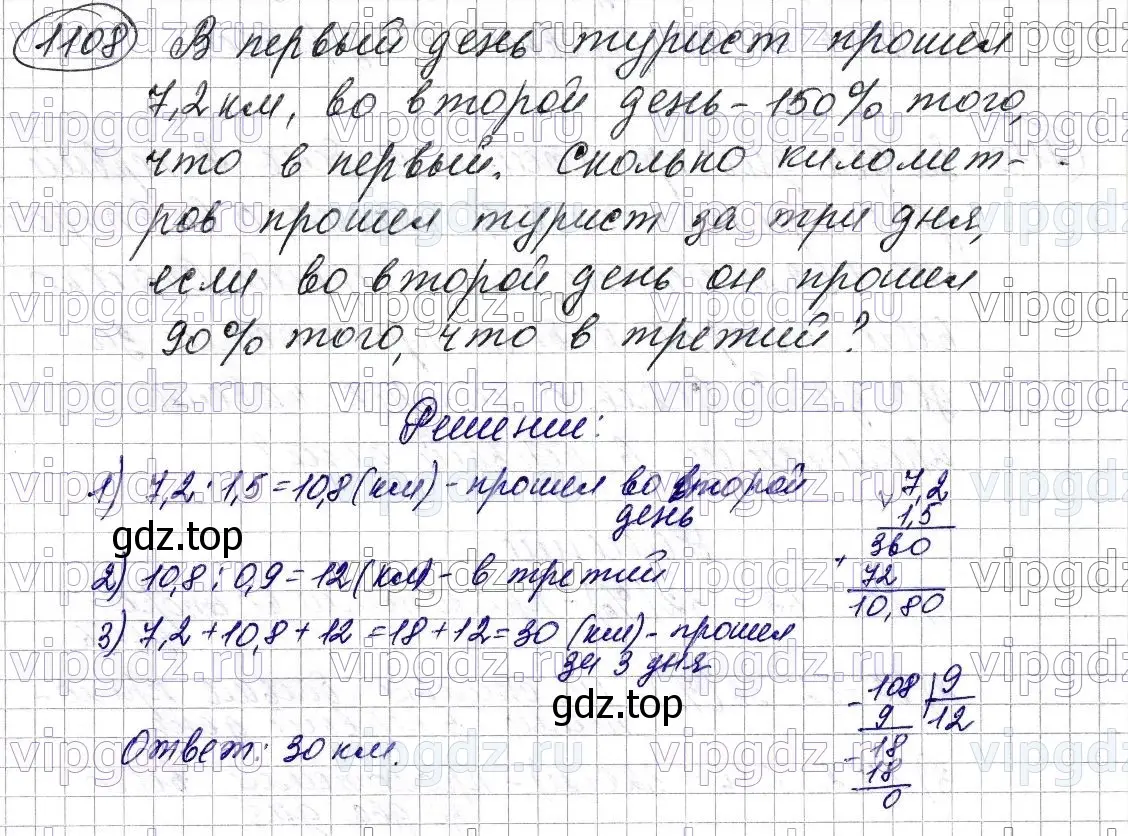 1108 В первый день турист прошел
7,2 км, во второй день - 150% того,
что в первый. Сколько километ-
ров прошел турист за три дня,
если во второй день он прошел
90% того, что в третий?
Решение:
1) 7,2 · 1,5 = 10,8 (км) - прошел во второй
день
2) 10,8 : 0,9 = 12 (км) - в третий
3) 7,2 + 10,8 + 12 = 18 + 12 = 30 (км) - прошел
за 3 дня
Ответ: 30 км.
7,2
1,5
360
+
72
10,80
- 108 9
9 12
- 18
18
0
gdz.top
gdz.top
vipgdz.ru